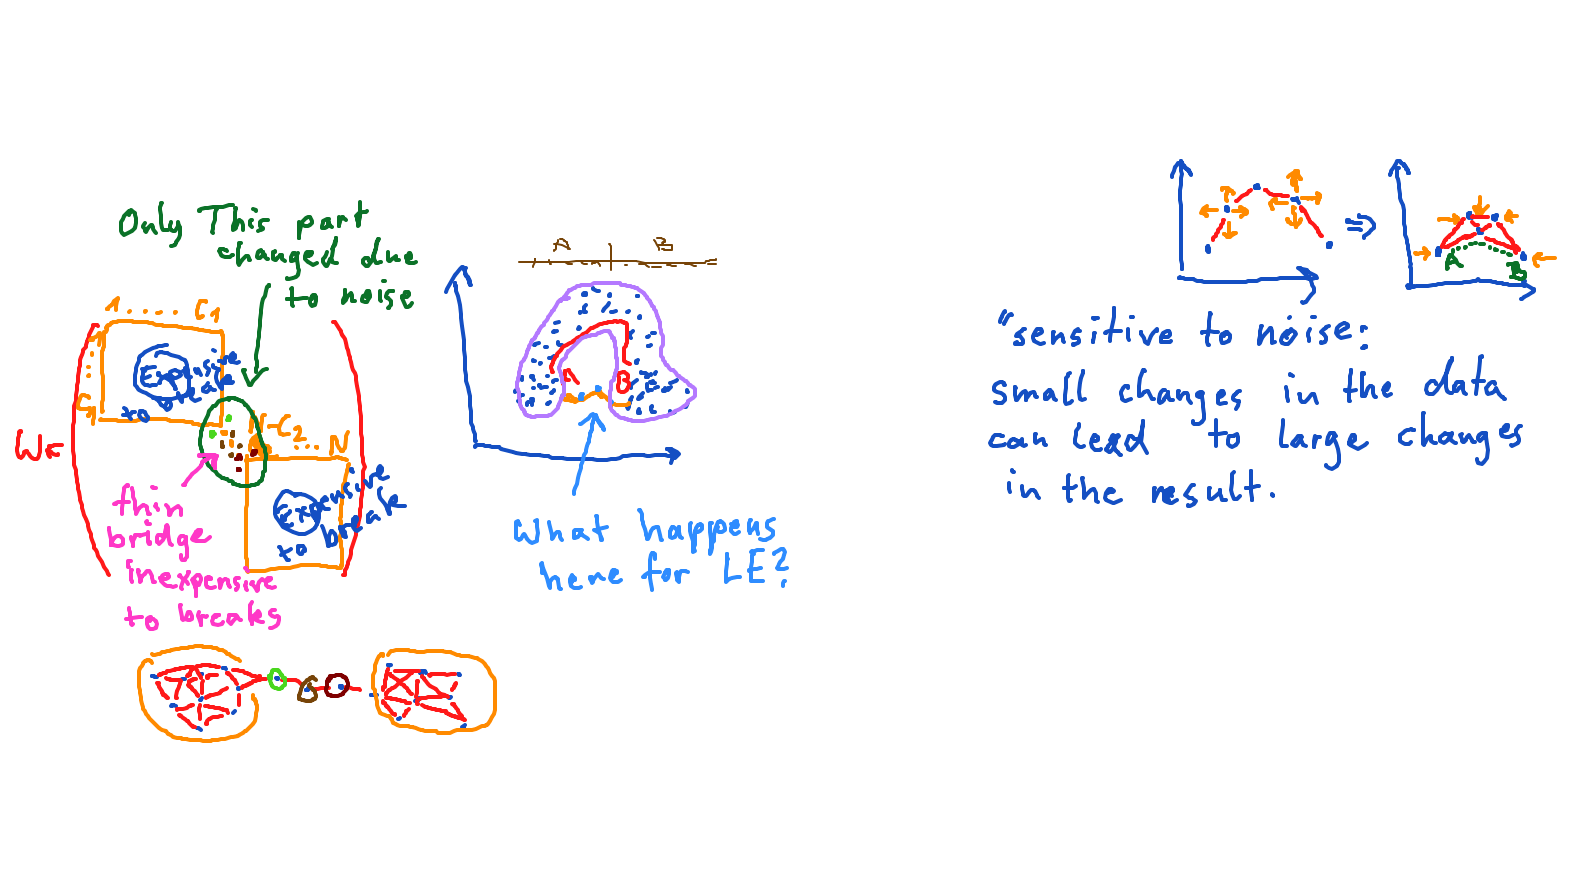 Only This part
changed due
to noise
1 ..... C1
C1
Expensive
to break
W=
N-C2 ... N
Expensive
to break
thin
bridge
inexpensive
to breaks
A B
A B
What happens
here for LE?
⇒
A B
"sensitive to noise:
small changes in the data
can lead to large changes
in the result.